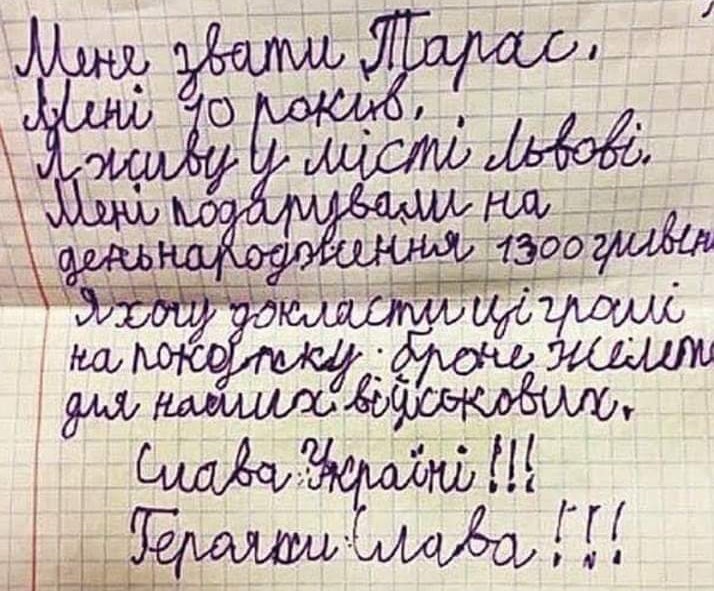 Мене звати Тарас.
Мені 10 років.
Я живу у місті Львові.
Мені подарували на
деньнародження 1300 гривень
Я хочу докласти ці гроші
на покупку броне желет
для наших військових.
Слава Україні!!!
Героями Слава!!!